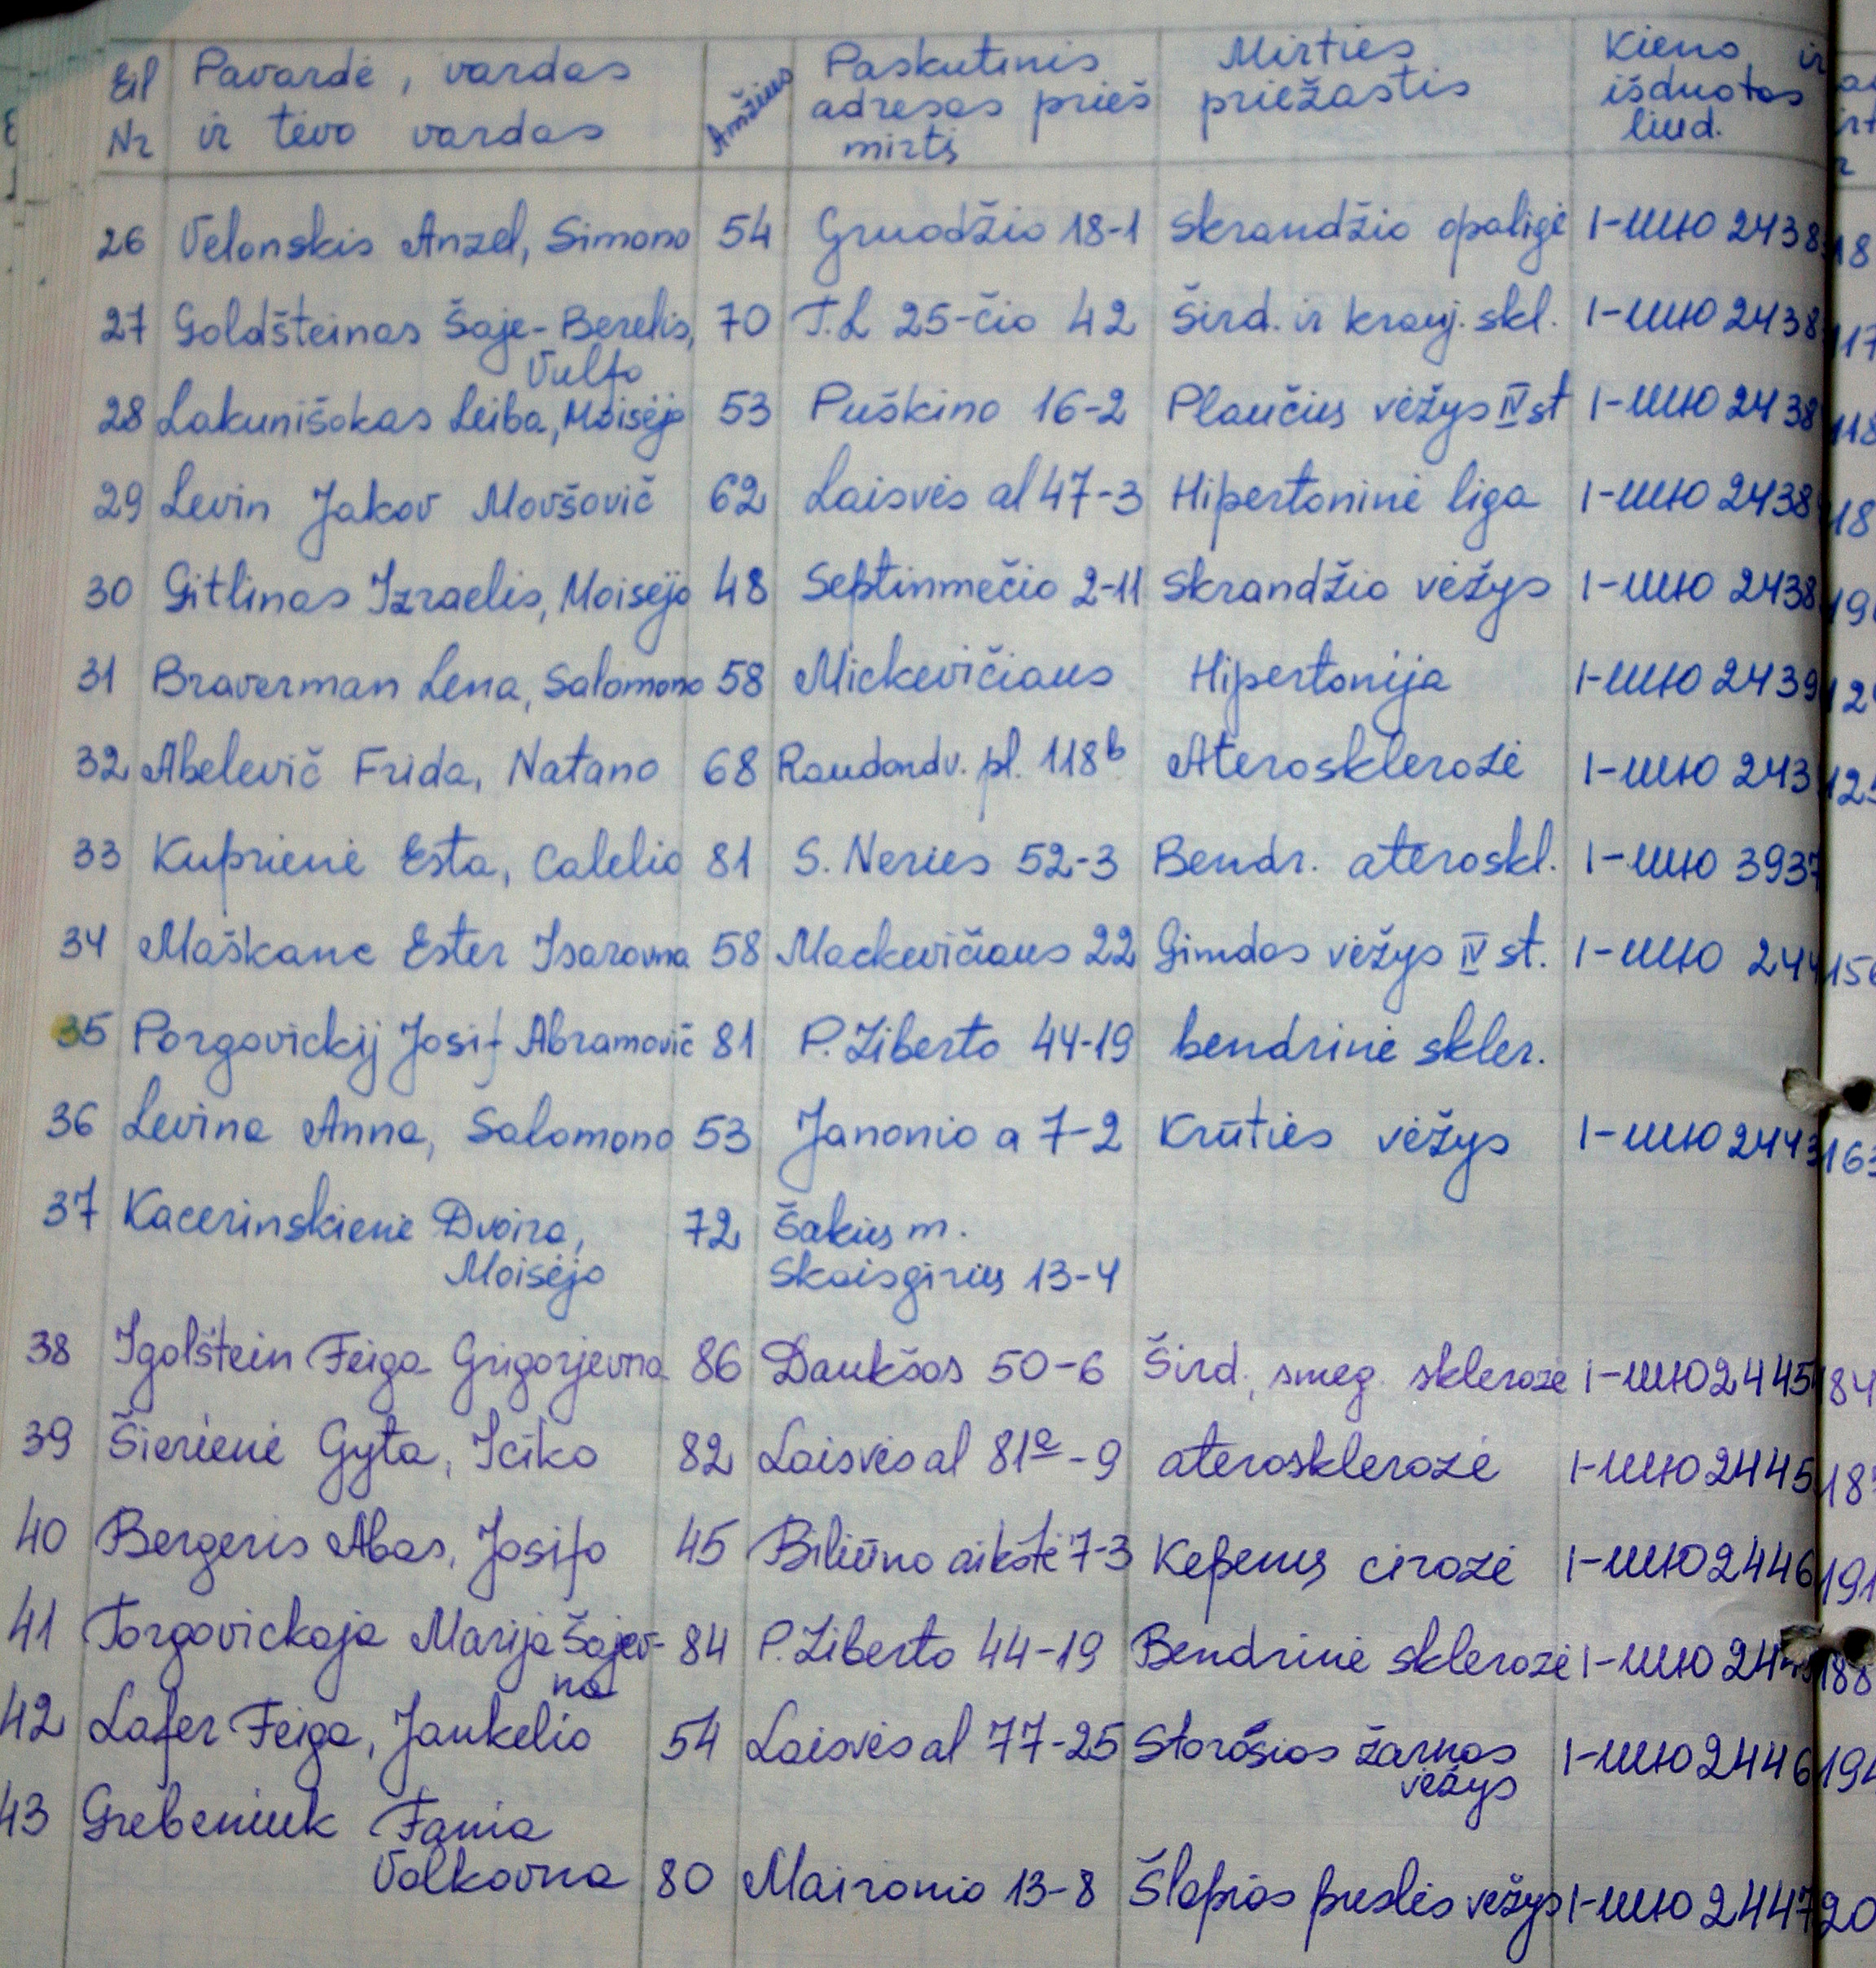 Eil Nr Pavardė, vardas ir tėvo vardas Amžius Paskutinis adresas prieš mirtį Mirties priežastis Kieno ir išduotas liud.
26 Velonskis Anzel, Simono 54 Gruodžio 18-1 Skrandžio opaligė I-ШЮ 2438
27 Goldšteinas Šaje-Berelis, Vulfo 70 T.L 25-čio 42 Šird. ir krauj. skl. I-ШЮ 2438
28 Lakunišokas Leiba, Moisėjo 53 Puškino 16-2 Plaučių vėžys IV st I-ШЮ 2438
29 Levin Jakov Movšovič 62 Laisvės al 47-3 Hipertoninė liga I-ШЮ 2438
30 Gitlinas Izraelis, Moisėjo 48 Septinmečio 2-11 Skrandžio vėžys I-ШЮ 2438
31 Braverman Lena, Salomono 58 Mickevičiaus Hipertonija I-ШЮ 2439
32 Abelevič Frida, Natano 68 Raudondv. pl. 118b Aterosklerozė I-ШЮ 243
33 Kuprienė Esta, Calelio 81 S. Neries 52-3 Bendr. ateroskl. I-ШЮ 3937
34 Maškanc Ester Isarovna 58 Mackevičiaus 22 Gimdos vėžys IV st. I-ШЮ 244
35 Porgovickij Josif Abramovič 81 P. Ziberto 44-19 bendrinė skler.
36 Levina Anna, Salomono 53 Janonio a 7-2 Krūties vėžys I-ШЮ 2443
37 Kacerinskienė Dvoira, Moisėjo 72 Šakių m. Skaisgirių 13-4
38 Igolštein Feiga Grigorjevna 86 Daukšos 50-6 Šird., smeg. sklerozė I-ШЮ 2445
39 Šierienė Gyta, Iciko 82 Laisvės al 81a-9 aterosklerozė I-ШЮ 2445
40 Bergeris Abas, Josifo 45 Biliūno aikštė 7-3 Kepenų cirozė I-ШЮ 2446
41 Torgovickaja Marija Šajev-na 84 P. Ziberto 44-19 Bendrinė sklerozė I-ШЮ 244
42 Lafer Feiga, Jankelio 54 Laisvės al 77-25 Storosios žarnos vėžys I-ШЮ 2446
43 Grebeniuk Fania Volkovna 80 Maironio 13-8 Šlapios puslės vėžys I-ШЮ 2447